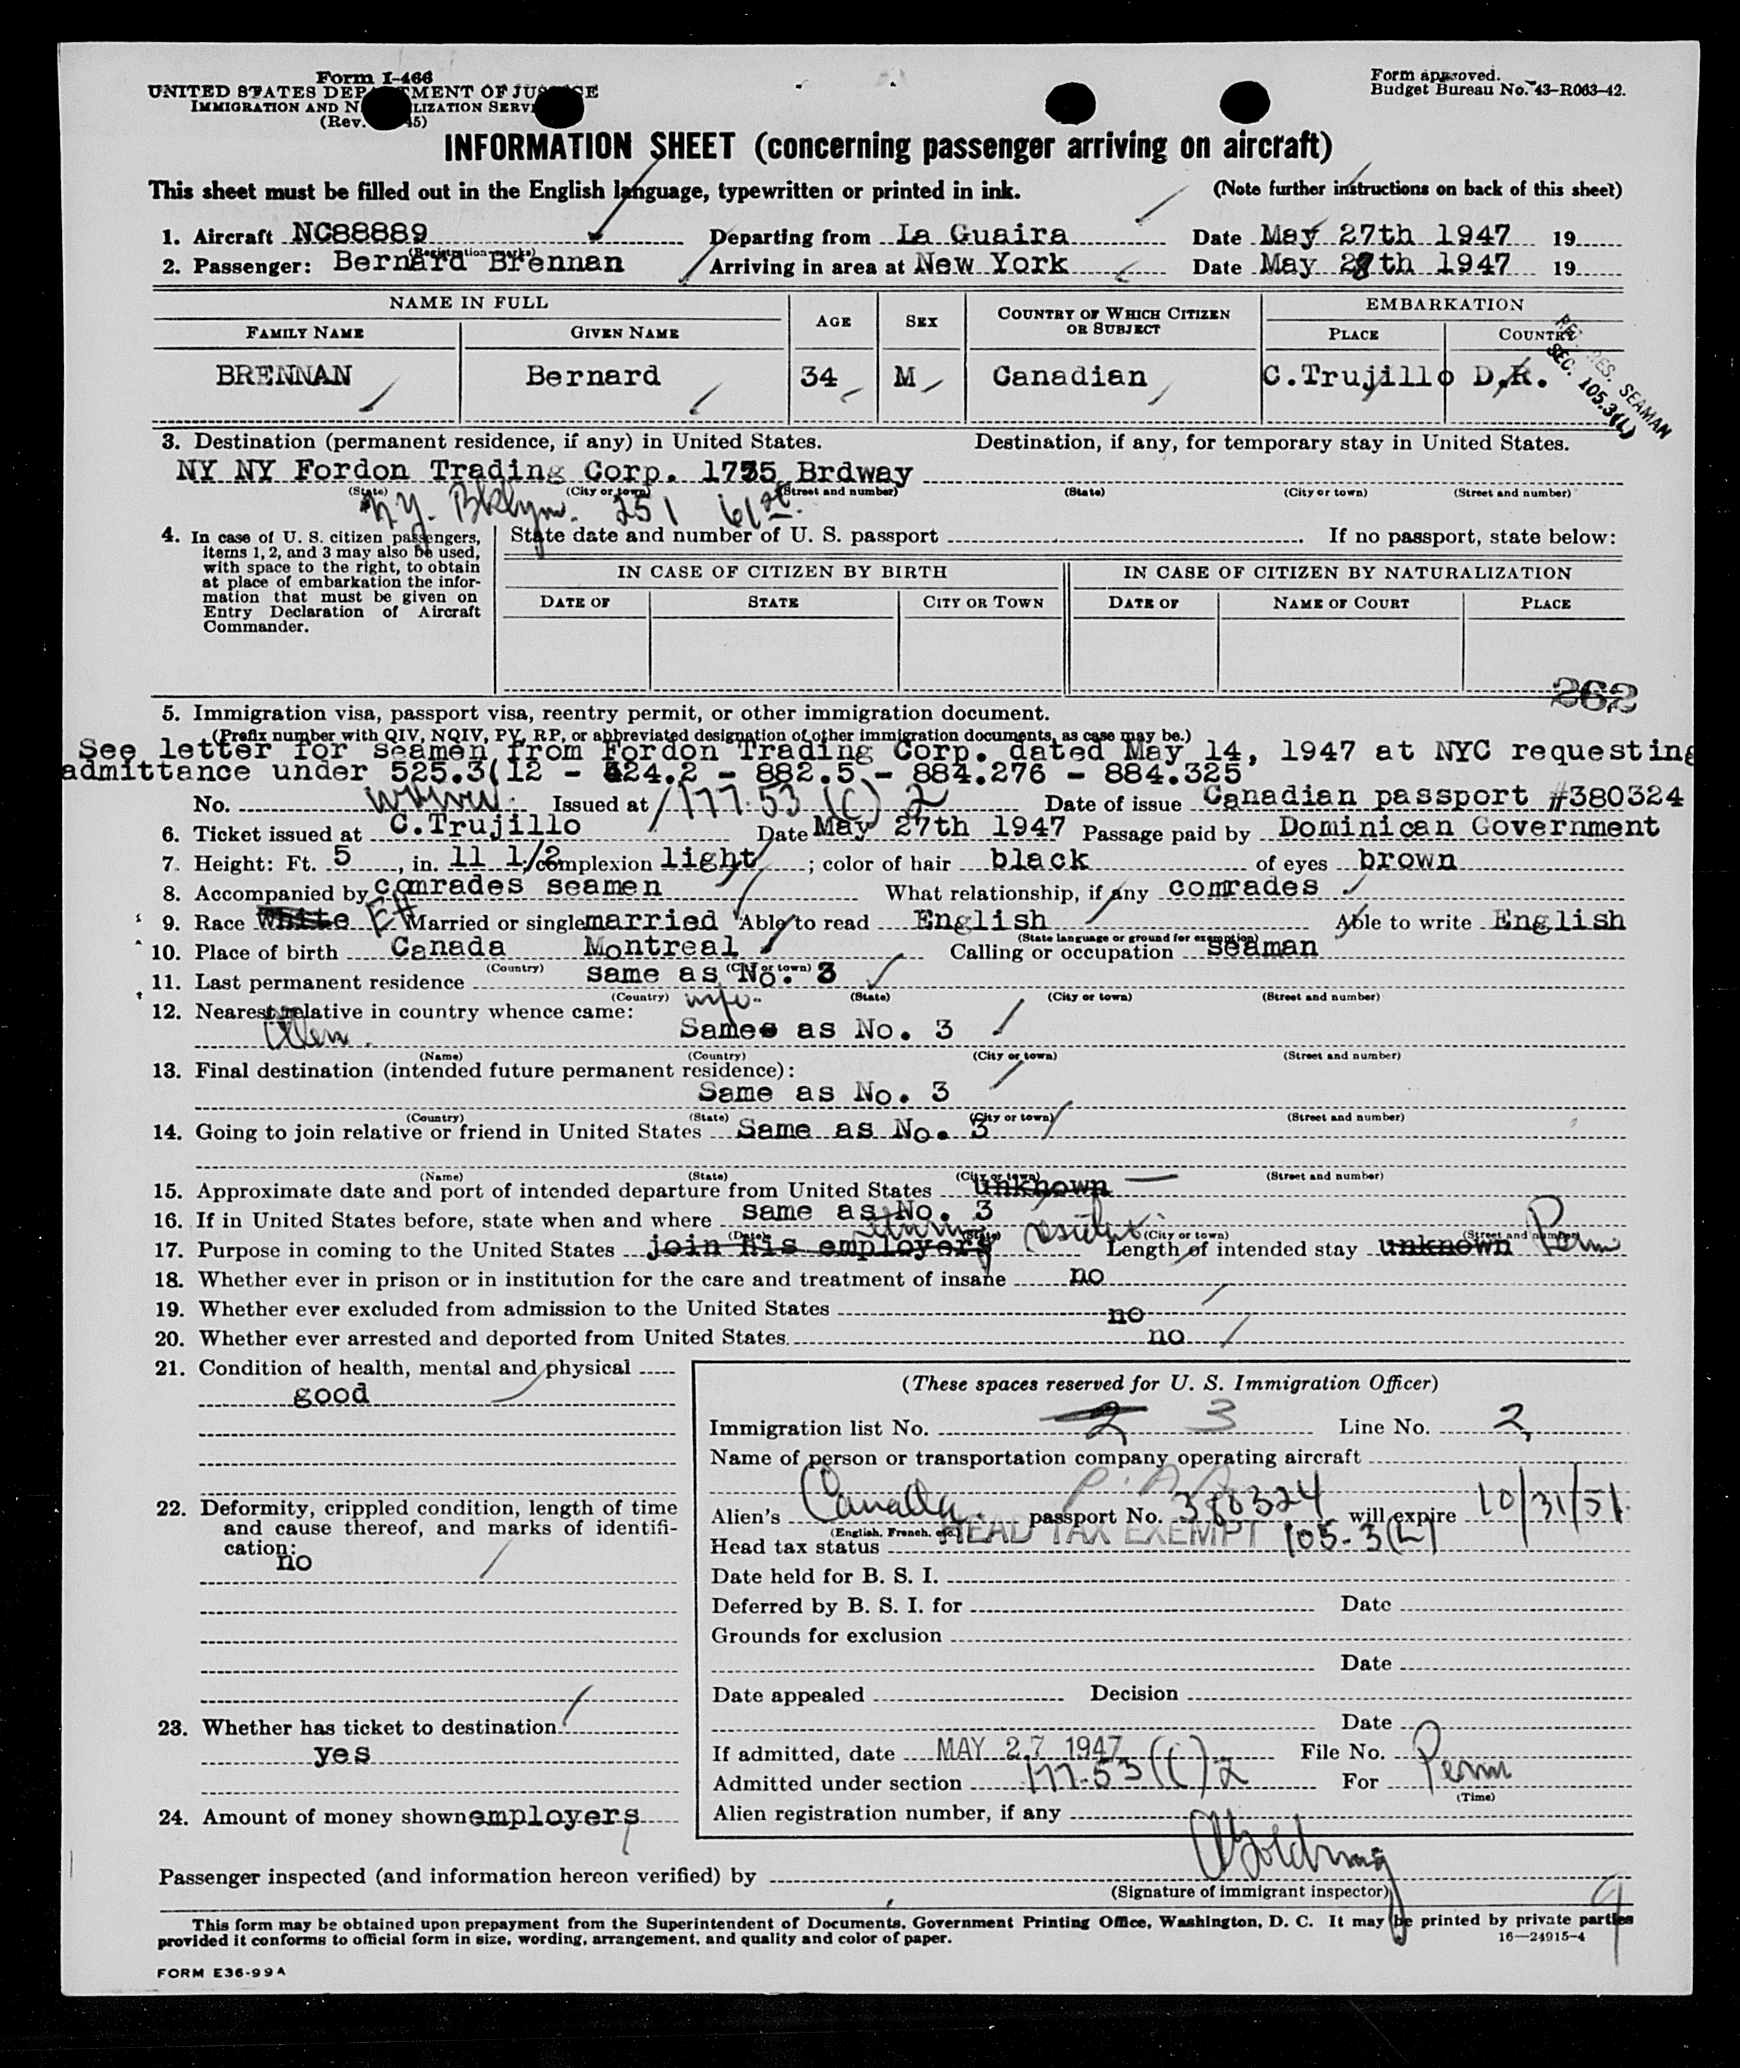 Form I-466
UNITED STATES DEPARTMENT OF JUSTICE
IMMIGRATION AND NATURALIZATION SERVICE
(Rev. 45)
Form approved.
Budget Bureau No. 43-R063-42.
INFORMATION SHEET (concerning passenger arriving on aircraft)
This sheet must be filled out in the English language, typewritten or printed in ink. (Note further instructions on back of this sheet)
1. Aircraft NC88889 Departing from La Guaira Date May 27th 1947 19
(Registration marks)
2. Passenger: Bernard Brennan Arriving in area at New York Date May 28th 1947 19
NAME IN FULL AGE SEX COUNTRY OF WHICH CITIZEN OR SUBJECT EMBARKATION
FAMILY NAME GIVEN NAME PLACE COUNTRY
BRENNAN Bernard 34 M Canadian C.Trujillo D.R.
RES. SEAMAN
SEC. 105.3(L)
3. Destination (permanent residence, if any) in United States. Destination, if any, for temporary stay in United States.
NY NY Fordon Trading Corp. 1775 Brdway
(State) (City or town) (Street and number) (State) (City or town) (Street and number)
N.Y. Bklyn. 251 61st.
4. In case of U. S. citizen passengers, items 1, 2, and 3 may also be used, with space to the right, to obtain at place of embarkation the information that must be given on Entry Declaration of Aircraft Commander.
State date and number of U. S. passport If no passport, state below:
IN CASE OF CITIZEN BY BIRTH IN CASE OF CITIZEN BY NATURALIZATION
DATE OF STATE CITY OR TOWN DATE OF NAME OF COURT PLACE
262
5. Immigration visa, passport visa, reentry permit, or other immigration document.
(Prefix number with QIV, NQIV, PV, RP, or abbreviated designation of other immigration documents, as case may be.)
See letter for seamen from Fordon Trading Corp. dated May 14, 1947 at NYC requesting
admittance under 525.3(12 - 824.2 - 882.5 - 884.276 - 884.325
No. Issued at 177.53 (C) 2 Date of issue Canadian passport #380324
6. Ticket issued at C.Trujillo Date May 27th 1947 Passage paid by Dominican Government
7. Height: Ft. 5, in. 11 1/2; complexion light; color of hair black of eyes brown
8. Accompanied by comrades seamen What relationship, if any comrades
9. Race White Married or single married Able to read English Able to write English
(State language or ground for exemption)
10. Place of birth Canada Montreal Calling or occupation seaman
(Country) (City or town)
11. Last permanent residence same as No. 3
(Country) (State) (City or town) (Street and number)
12. Nearest relative in country whence came: wife
Ellen. Sames as No. 3
(Name) (Country) (City or town) (Street and number)
13. Final destination (intended future permanent residence):
Same as No. 3
(Country) (State) (City or town) (Street and number)
14. Going to join relative or friend in United States Same as No. 3
(Name) (State) (City or town) (Street and number)
15. Approximate date and port of intended departure from United States unknown
16. If in United States before, state when and where same as No. 3
(Date) (State) (City or town) (Street and number)
returning resident
17. Purpose in coming to the United States join his employers Length of intended stay unknown Perm
18. Whether ever in prison or in institution for the care and treatment of insane no
19. Whether ever excluded from admission to the United States no
20. Whether ever arrested and deported from United States. no
21. Condition of health, mental and physical
good
22. Deformity, crippled condition, length of time and cause thereof, and marks of identification:
no
23. Whether has ticket to destination
yes
24. Amount of money shown employers
(These spaces reserved for U. S. Immigration Officer)
Immigration list No. 2 3 Line No. 2
Name of person or transportation company operating aircraft
P.A.A.
Alien's Canada. passport No. 380324 will expire 10/31/51.
(English, French, etc.)
Head tax status HEAD TAX EXEMPT 105-3(L)
Date held for B. S. I.
Deferred by B. S. I. for Date
Grounds for exclusion
Date
Date appealed Decision
Date
If admitted, date MAY 27 1947 File No.
Admitted under section 177-53(C)2 For Perm
(Time)
Alien registration number, if any
Passenger inspected (and information hereon verified) by
(Signature of immigrant inspector)
This form may be obtained upon prepayment from the Superintendent of Documents, Government Printing Office, Washington, D. C. It may be printed by private parties
provided it conforms to official form in size, wording, arrangement, and quality and color of paper. 16—24915-4
FORM E36-99A